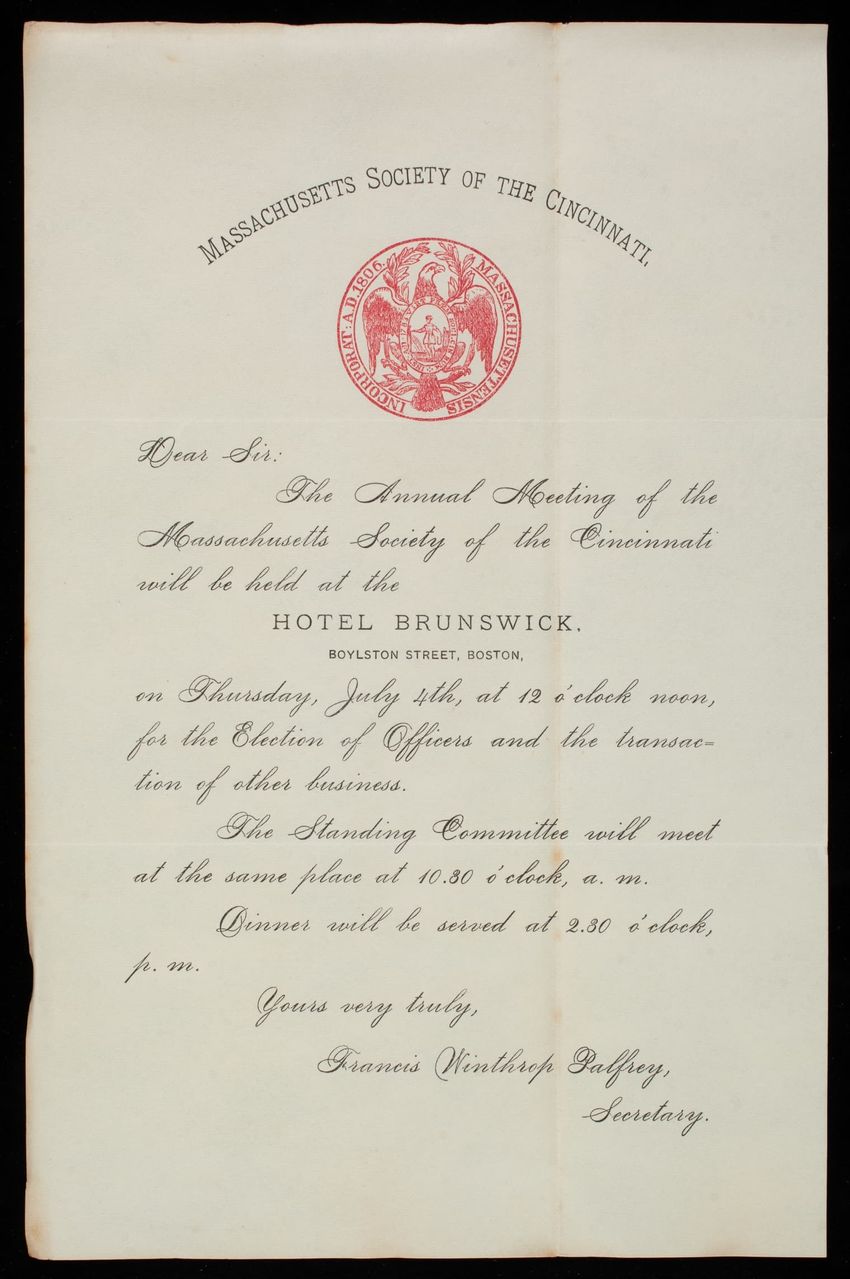 MASSACHUSETTS SOCIETY OF THE CINCINNATI.
INCORPORAT: A.D. 1806. MASSACHUSETTENSIS
Dear Sir:
The Annual Meeting of the
Massachusetts Society of the Cincinnati
will be held at the
HOTEL BRUNSWICK,
BOYLSTON STREET, BOSTON,
on Thursday, July 4th, at 12 o'clock noon,
for the Election of Officers and the transac=
tion of other business.
The Standing Committee will meet
at the same place at 10.30 o'clock, a. m.
Dinner will be served at 2.30 o'clock,
p. m.
Yours very truly,
Francis Winthrop Palfrey,
Secretary.